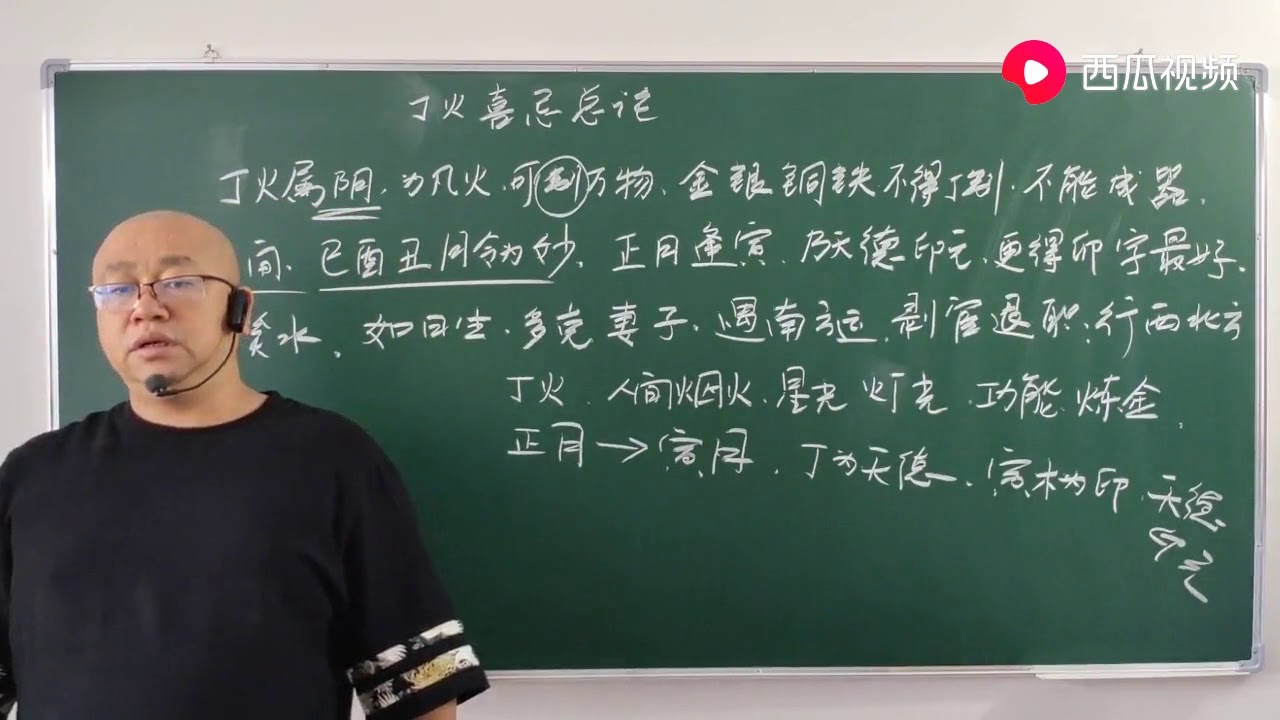 西瓜视频
丁火喜忌总论
丁火属阴，为凡火，可制万物，金银铜铁不得丁制，不能成器，
巳酉丑月令为妙，正月逢寅，乃天德印元，更得卯字最好，
水，如日生，多克妻子，遇南方运，剥官退职，行西北方
丁火，人间烟火，星光，灯光，功能，炼金，
正月→寅月，丁为天德，寅木为印，天德